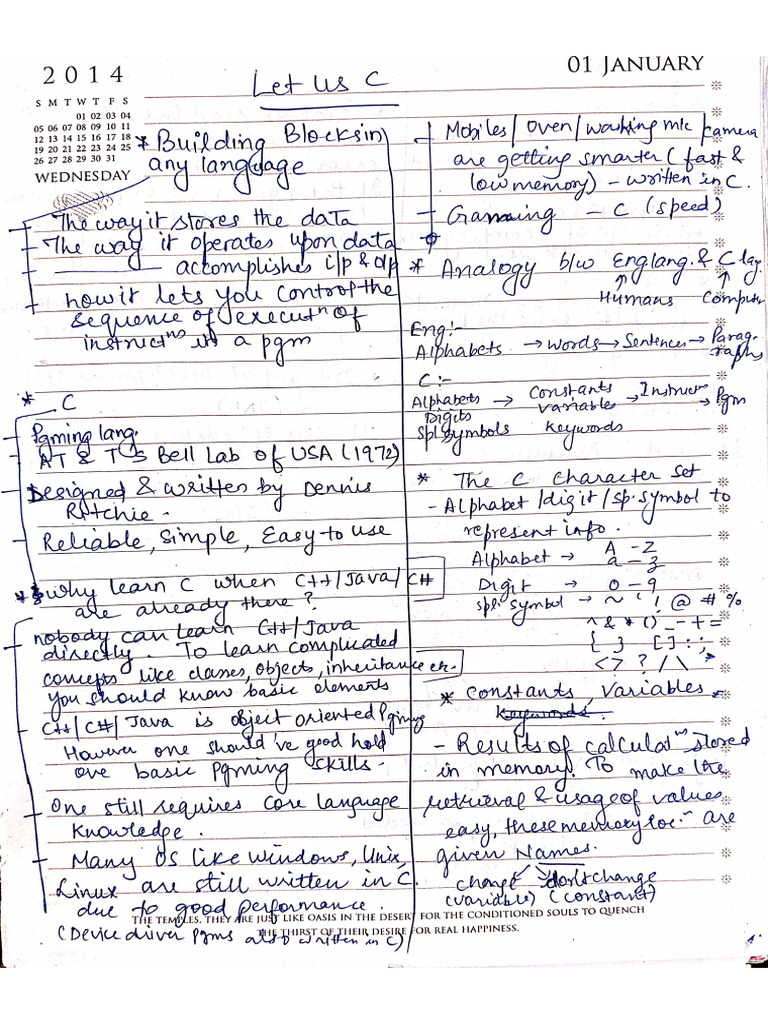 2014
01 JANUARY
S M T W T F S
01 02 03 04
05 06 07 08 09 10 11
12 13 14 15 16 17 18
19 20 21 22 23 24 25
26 27 28 29 30 31
WEDNESDAY
Let us C
* Building Blocks in
any language
- The way it stores the data
- The way it operates upon data
- ———— accomplishes i/p & o/p
- how it lets you control the
sequence of executn of
instructns in a pgm
* C
- Pgming lang.
- AT & T's Bell Lab of USA (1972)
- Designed & written by Dennis
Ritchie.
- Reliable, Simple, Easy to use
* why learn C when C++/Java/C#
are already there?
- nobody can learn C++/Java
directly. To learn complicated
concepts like classes, objects, inheritance etc.
you should know basic elements
- C++/C#/Java is object oriented Pgming
However one should've good hold
ove basic Pgming skills.
- One still requires core language
knowledge.
- Many OS like windows, Unix,
Linux are still written in C.
due to good performance.
(Device driver pgms also written in C)
- Mobiles/Oven/washing m/c/camera
are getting smarter (fast &
low memory) - written in C.
- Gamming - C (speed)
* Analogy b/w Eng lang. & C lag.
Humans Computer
Eng:-
Alphabets → words → Sentences → Parag-
raphs
C:-
Alphabets → Constants → Instructn → Pgm
Digits variables
Spl symbols keywords
* The C character set
- Alphabet/digit/sp. symbol to
represent info.
Alphabet → A - Z
a - z
Digit → 0 - 9
spl. symbol → ~ ` ! @ # %
^ & * () _ - + =
{ } [ ] : ; ,
< > ? / \ "
* Constants, Variables
Keywords.
- Results of calculatns stored
in memory. To make the
retrieval & usage of values
easy, these memory locns are
given Names.
change don't change
(variable) (constant)
THE TEMPLES. THEY ARE JUST LIKE OASIS IN THE DESERT FOR THE CONDITIONED SOULS TO QUENCH
THE THIRST OF THEIR DESIRE FOR REAL HAPPINESS.